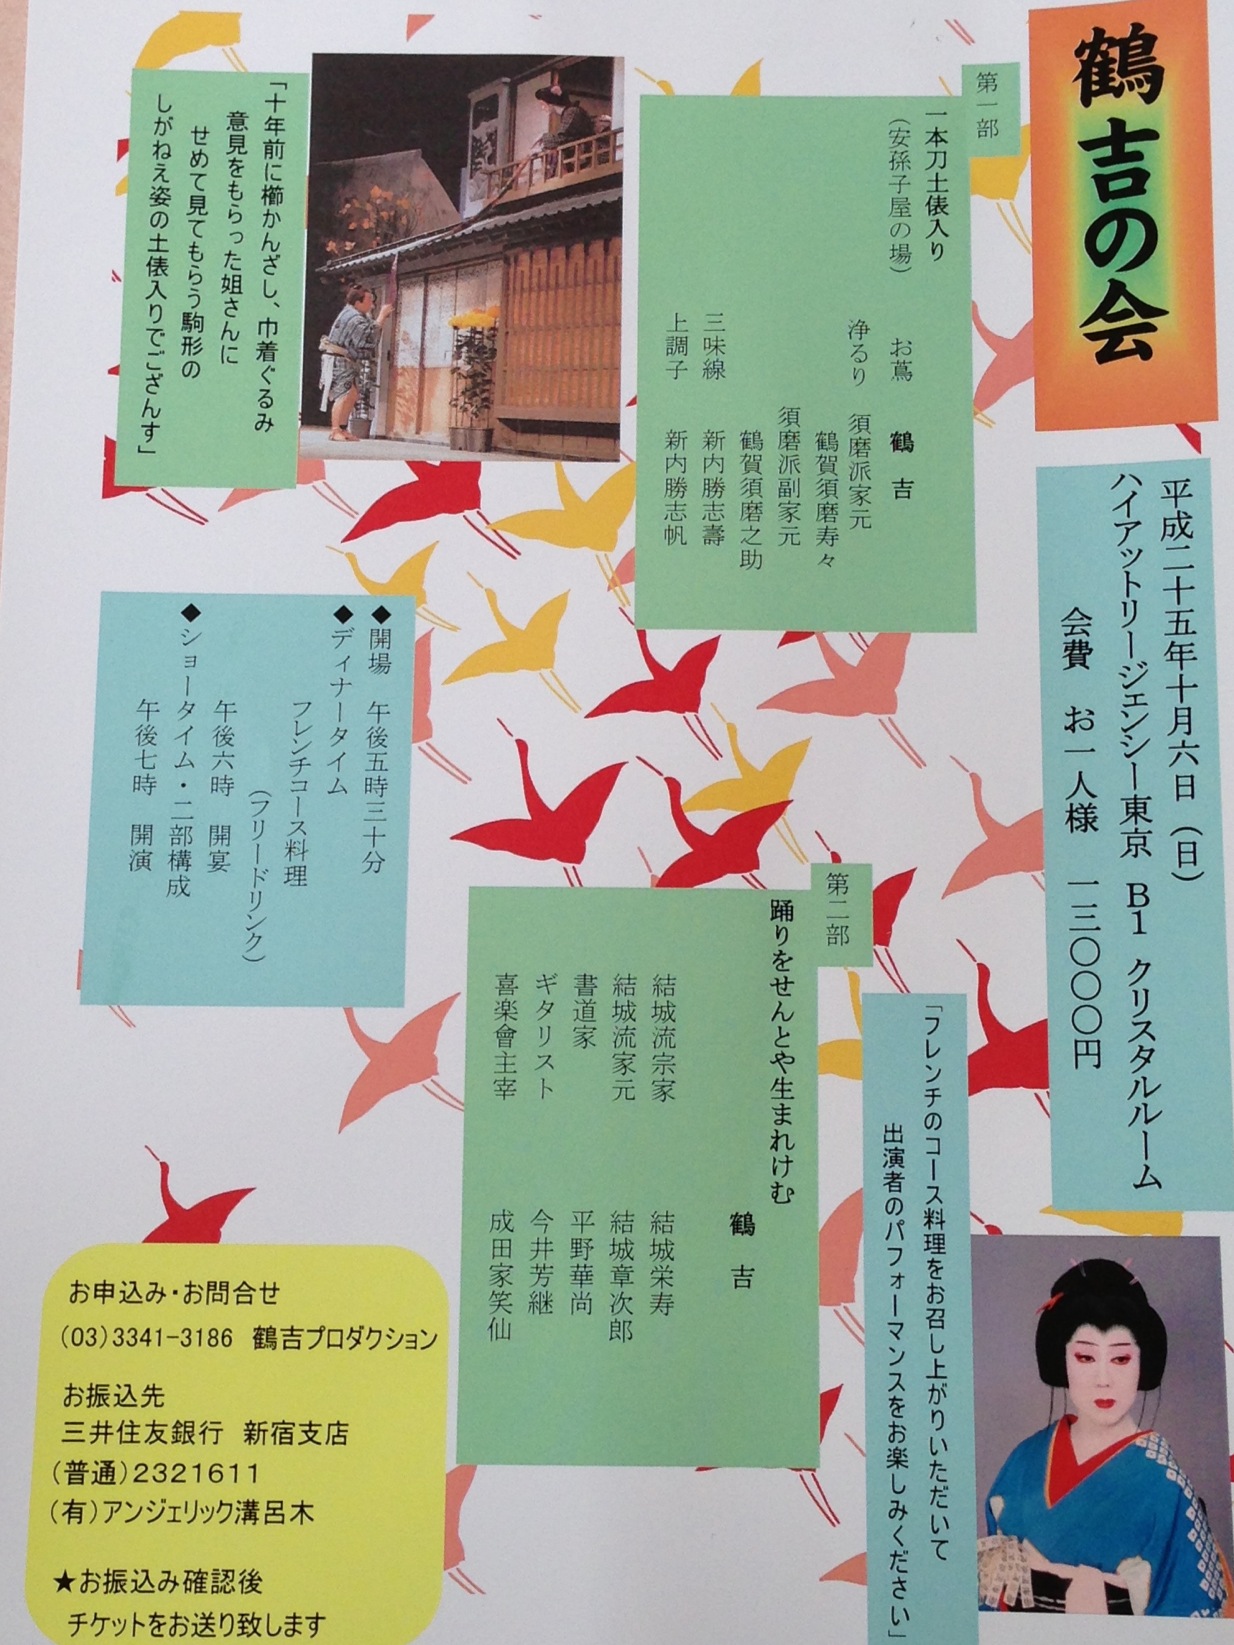 鶴吉の会
平成二十五年十月六日（日）
ハイアットリージェンシー東京　B1　クリスタルルーム
会費　お一人様　一三〇〇〇円
第一部
一本刀土俵入り
（安孫子屋の場）
お蔦　鶴　吉
浄るり　須磨派家元
鶴賀須磨寿々
須磨派副家元
鶴賀須磨之助
三味線　新内勝志壽
上調子　新内勝志帆
「十年前に櫛かんざし、巾着ぐるみ
意見をもらった姐さんに
せめて見てもらう駒形の
しがねえ姿の土俵入りでござんす」
◆開場　午後五時三十分
◆ディナータイム
フレンチコース料理
（フリードリンク）
午後六時　開宴
◆ショータイム・二部構成
午後七時　開演
第二部
踊りをせんとや生まれけむ
鶴　吉
結城流宗家　結城栄寿
結城流家元　結城章次郎
書道家　平野華尚
ギタリスト　今井芳継
喜楽會主宰　成田家笑仙
「フレンチのコース料理をお召し上がりいただいて
出演者のパフォーマンスをお楽しみください」
お申込み・お問合せ
(03)3341-3186　鶴吉プロダクション
お振込先
三井住友銀行　新宿支店
(普通)2321611
(有)アンジェリック溝呂木
★お振込み確認後
チケットをお送り致します